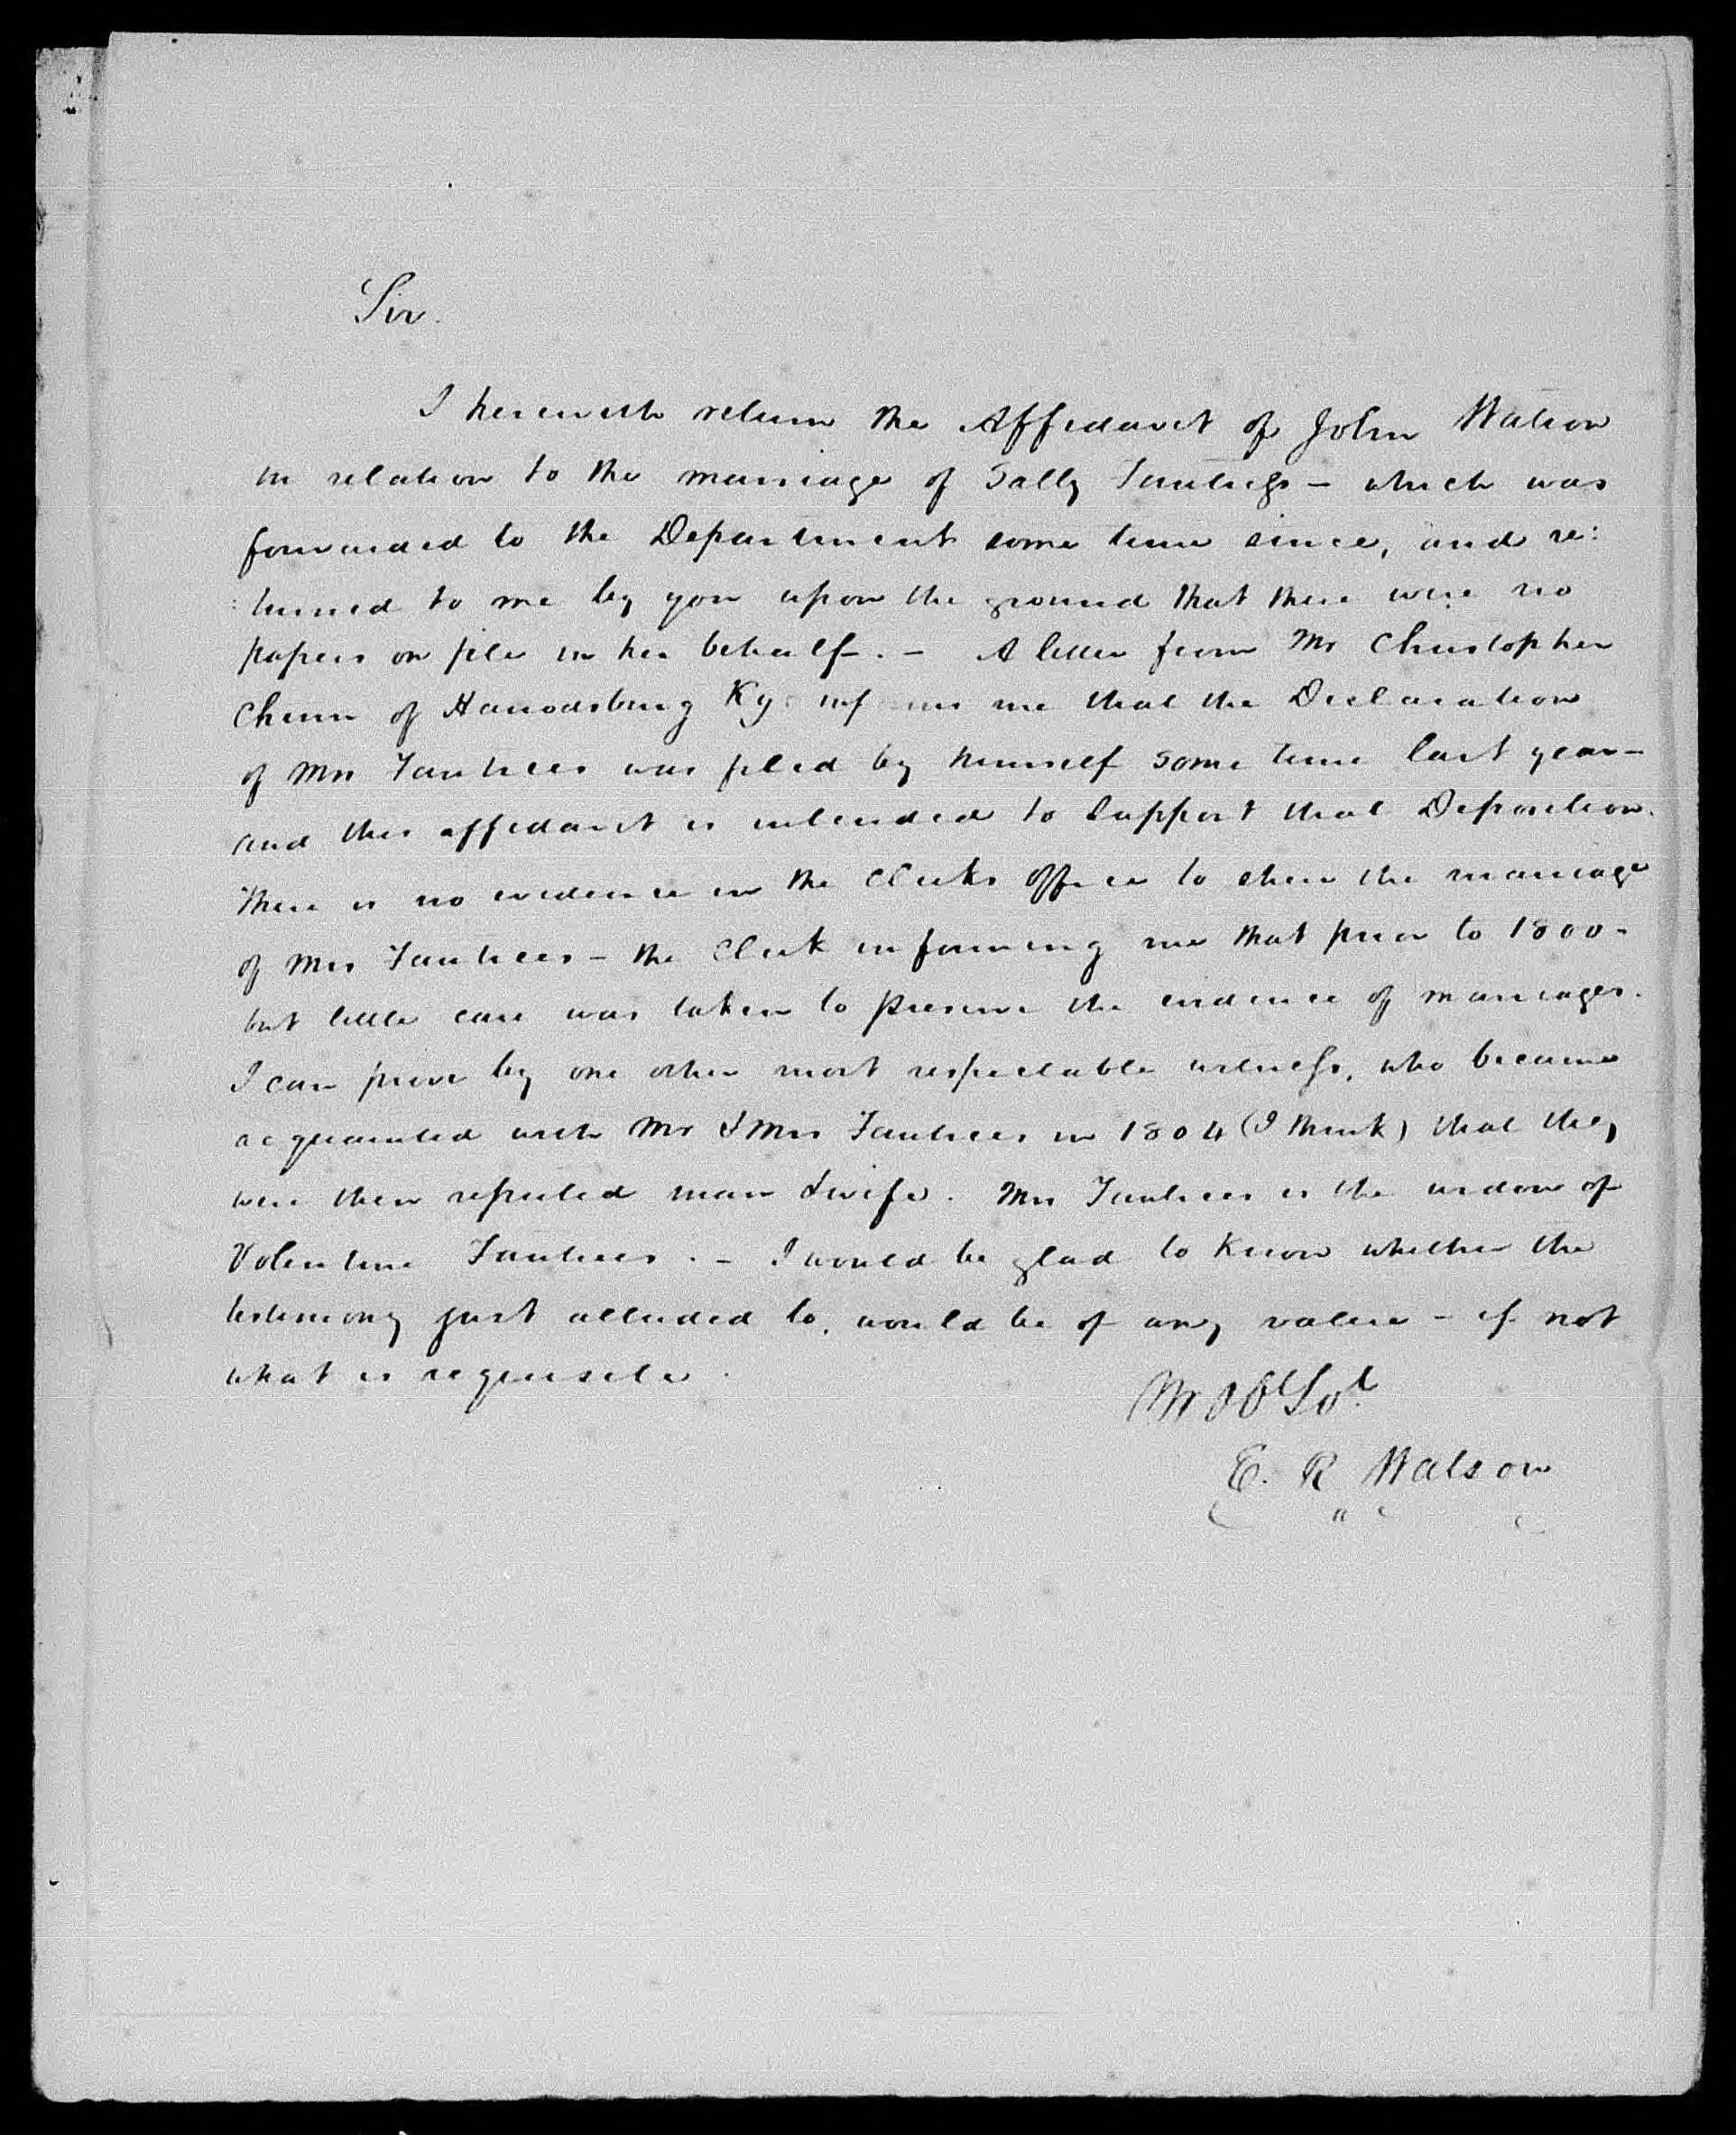 Sir.
I herewith return the Affidavit of John Watson
in relation to the marriage of Sally - which was
forwarded to the Department some time since, and re:
:turned to me by you upon the ground that there were no
papers on file in her behalf. - A letter from Mr Christopher
Chinn of Harrodsburg Ky. informs me that the Declaration
of Mrs Fauntleroy was filed by himself some time last year -
and this affidavit is intended to support that Deposition.
There is no evidence in the Clerks office to shew the marriage
of Mrs - the Clerk informing me that prior to 1800 -
but little care was taken to preserve the evidence of marriages.
I can prove by one other most respectable witness, who became
acquainted with Mr & Mrs in 1804 (I think) that they
were then reputed man & wife. Mrs is the widow of
Valentine . - I would be glad to know whether the
testimony just alluded to, would be of any value - if not
what is requisite.
Mo Obt Svt
E. R Watson